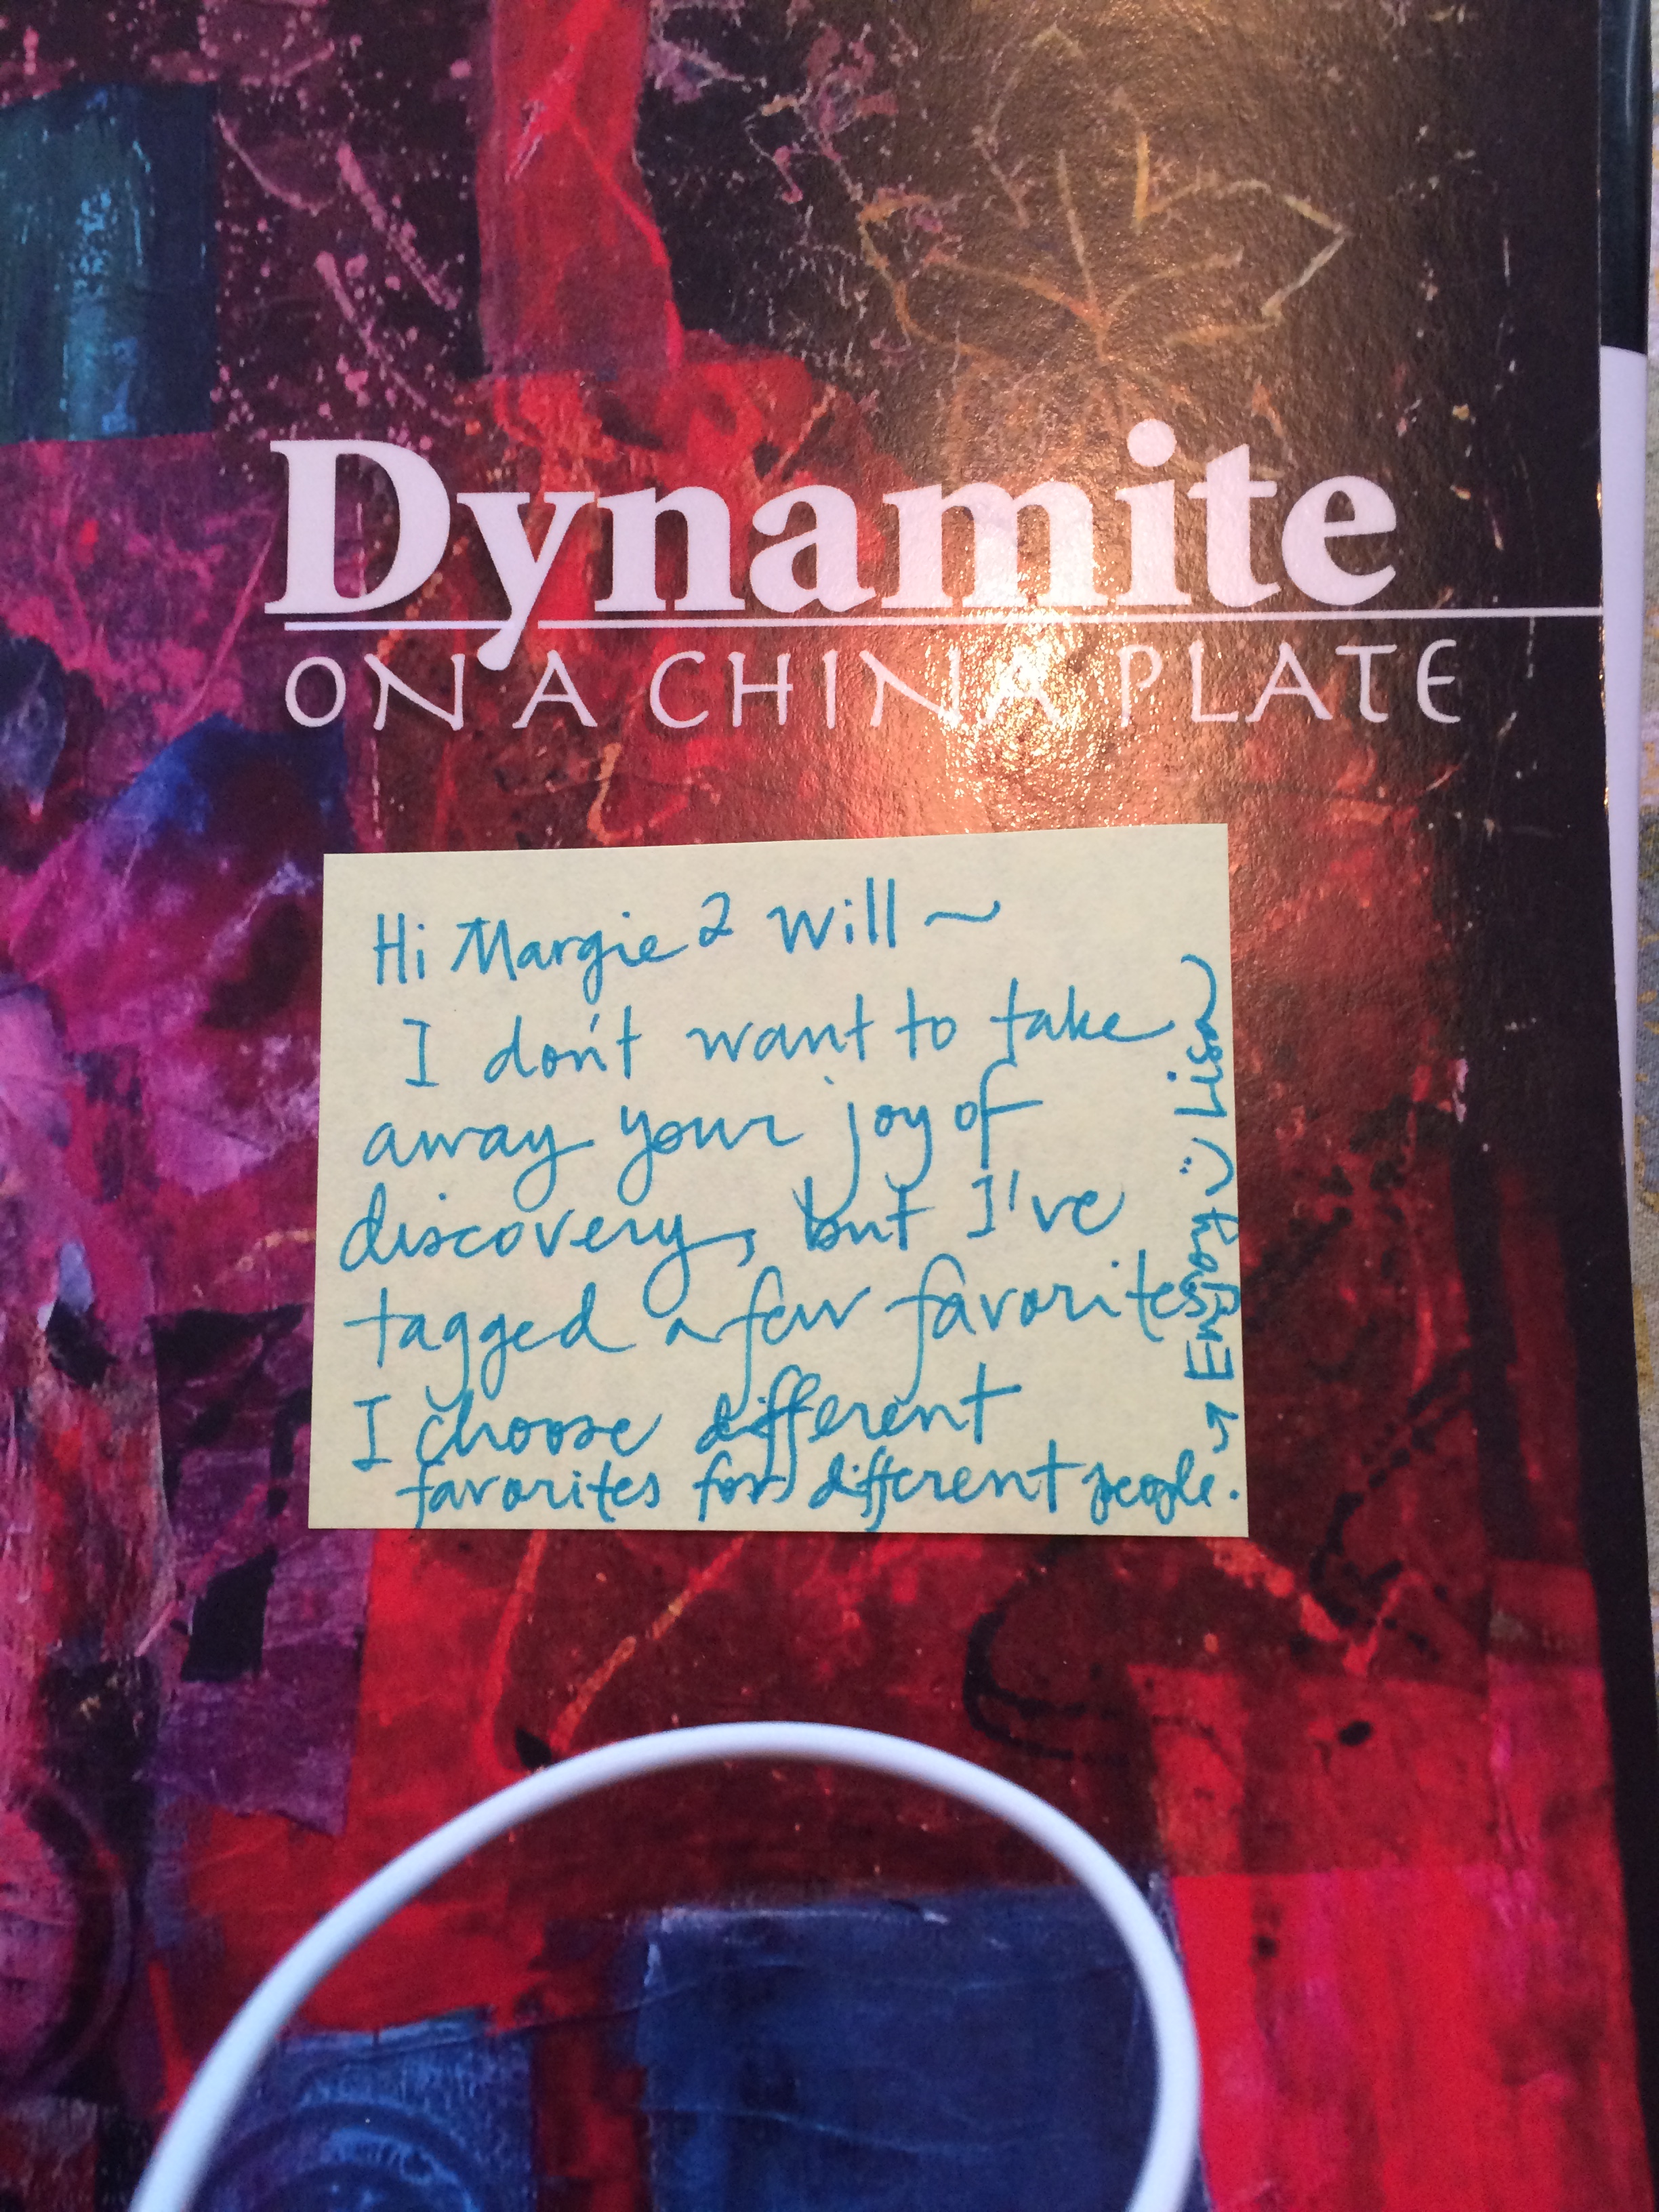 Dynamite
ON A CHINA PLATE
Hi Margie & Will ~
I don't want to take
away your joy of
discovery, but I've
tagged a few favorites
I choose different
favorites for different people.
→ Enjoy! Lisa